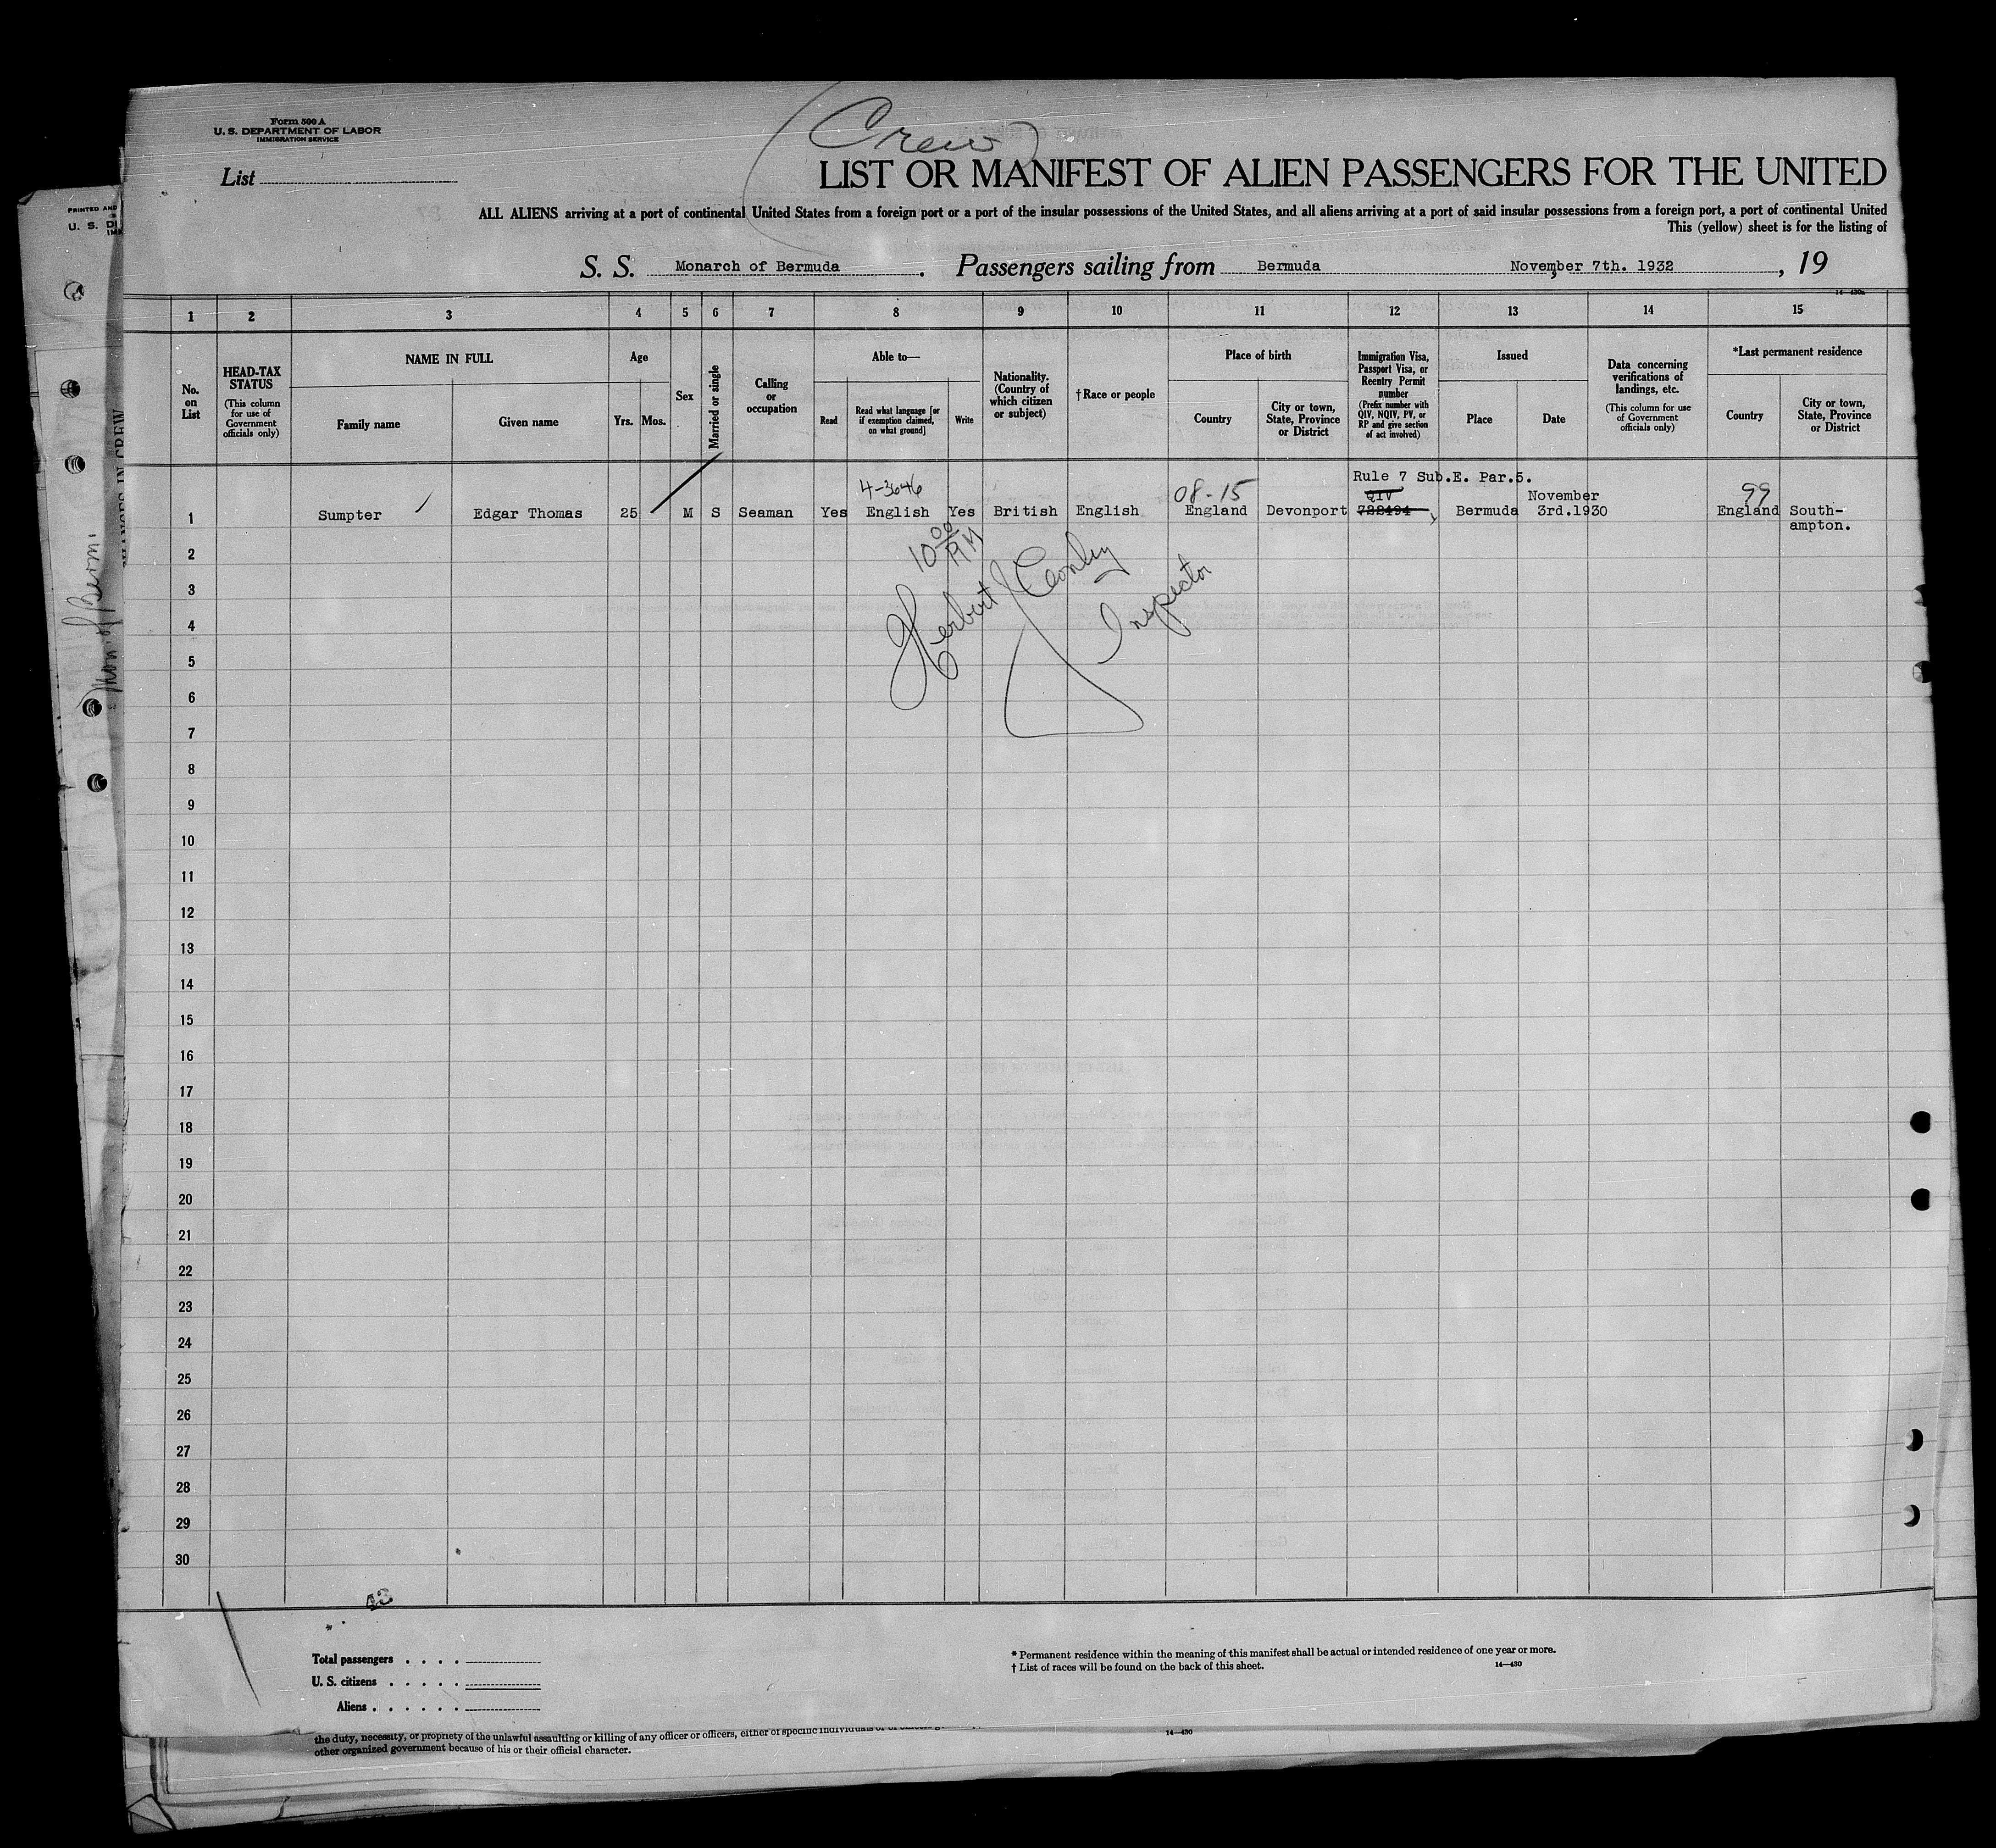 (Crew)
Form 500 A
U. S. DEPARTMENT OF LABOR
IMMIGRATION SERVICE
List
LIST OR MANIFEST OF ALIEN PASSENGERS FOR THE UNITED
ALL ALIENS arriving at a port of continental United States from a foreign port or a port of the insular possessions of the United States, and all aliens arriving at a port of said insular possessions from a foreign port, a port of continental United
This (yellow) sheet is for the listing of
S. S. Monarch of Bermuda. Passengers sailing from Bermuda November 7th. 1932, 19
PRINTED AND
U. S.
1 2 3 4 5 6 7 8 9 10 11 12 13 14 15
No. on List
HEAD-TAX STATUS (This column for use of Government officials only)
NAME IN FULL
Family name Given name
Age
Yrs. Mos.
Sex
Married or single
Calling or occupation
Able to—
Read Read what language [or if exemption claimed, on what ground] Write
Nationality. (Country of which citizen or subject)
†Race or people
Place of birth
Country City or town, State, Province or District
Immigration Visa, Passport Visa, or Reentry Permit number (Prefix number with QIV, NQIV, PV, or RP and give section of act involved)
Issued
Place Date
Data concerning verifications of landings, etc. (This column for use of Government officials only)
*Last permanent residence
Country City or town, State, Province or District
Rule 7 Sub.E. Par.5.
4-3646 08-15 QIV November 99
1 Sumpter Edgar Thomas 25 M S Seaman Yes English Yes British English England Devonport 722494 Bermuda 3rd.1930 England South-
ampton.
10 00 AM
Herbert J Conley
Inspector
2
3
4
5
6
7
8
9
10
11
12
13
14
15
16
17
18
19
20
21
22
23
24
25
26
27
28
29
30
Total passengers
U. S. citizens
Aliens
* Permanent residence within the meaning of this manifest shall be actual or intended residence of one year or more.
† List of races will be found on the back of this sheet.
14—430
the duty, necessity, or propriety of the unlawful assaulting or killing of any officer or officers, either of specific individuals or
other organized government because of his or their official character.
14—430